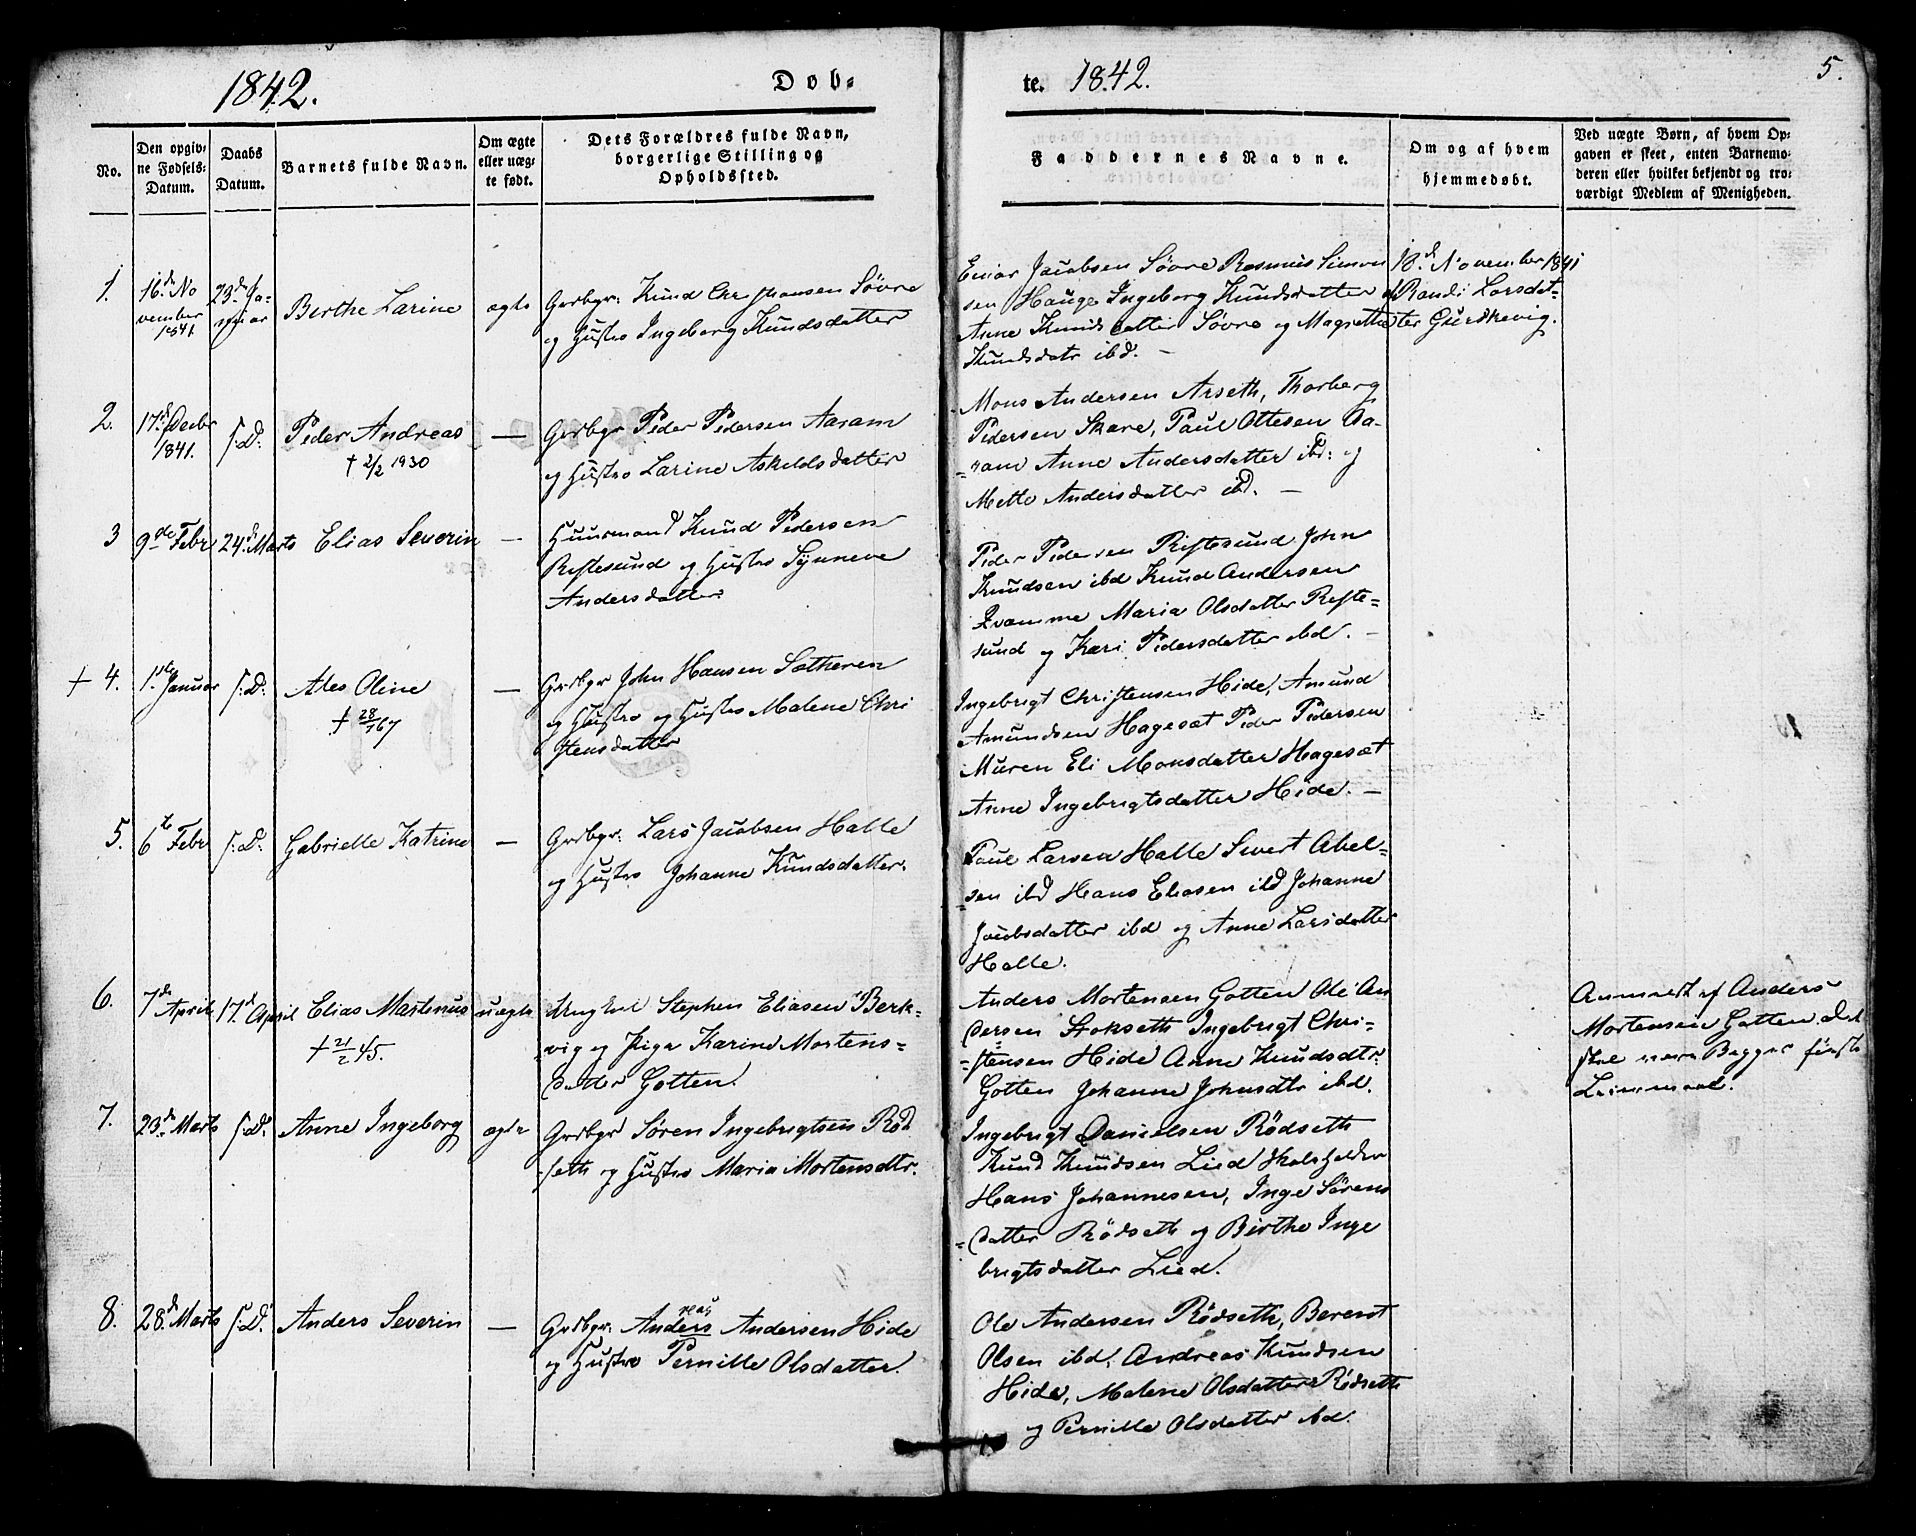 1842.
Døb-
te. 1842.
5.
No.
Den opgiv-
ne Fødsels-
Datum.
Daabs
Datum.
Barnets fulde Navn.
Om ægte
eller uæg-
te født.
Dets Forældres fulde Navn,
borgerlige Stilling og
Opholdssted.
Faddernes Navne.
Om og af hvem
hjemmedøbt.
Ved uægte Børn, af hvem Op-
gaven er skeet, enten Barnemo-
deren eller hvilket bekjendt og tro-
værdigt Medlem af Menigheden.
1.
16de No
vember
1841.
23de Ja-
nuar
Berthe Larine
ægte
Grdbgr: Knud Chr sthansen Søvre
og Hustro Ingeborg Knudsdatter
Einar Jacobsen Søvre Rasmus Simon
sen Hauge Ingeborg Knudsdatter
Anne Knudsdatter Søvre og Magrethe
Knudsdatr ibd. –
18de November 1841
af Randi Larsdat-
ter Gurskevig.
2.
17de Decbr
1841.
s: D:
Peder Andreas
† 2/2 1930
—
Grdbgr Peder Pedersen Aaram
og Hustro Larine Askeldsdatter
Mons Andersen Arseth, Thorberg
Pedersen Skare, Paul Ottesen Aa-
ram Anne Andersdatter ibd: og
Mette Andersdatter ibd. –
3
9de Febr
24de Marts
Elias Severin
—
Huusmand Knud Pedersen
Riftesund og Hustro Synneve
Andersdatter
Peder Pedersen Riftesund John
Knudsen ibd Knud Andersen
Qvamme Maria Olsdatter Rifte-
sund og Kari Pedersdatter ibd. –
† 4.
1ste Januar
s: D:
Ales Oline
† 28/1 67
—
Grdbgr John Hansen Sætheren
og Hustro og Hustro Malene Chri
stensdatter
Ingebrigt Christensen Hide, Amund
Amundsen Hagesæt Peder Pedersen
Muren Eli Monsdatter Hagesæt
Anne Ingebrigtsdatter Hide. –
5.
6te Febr
s: D:
Gabrielle Katrine
—
Grdbgr: Lars Jacobsen Halle
og Hustro Johanne Knudsdatter.
Paul Larsen Halle Sivert Abel-
sen ibd Hans Eliasen ibd Johanne
Jacobsdatter ibd og Anne Larsdatter
Halle.
6.
7de April
17de April
Elias Martinus
† 21/2 45.
uægte
Ungkarl Stephen Eliasen Berk-
vig og Pige Karine Mortens-
datter Gotten.
Anders Mortensen Gotten Ole An
dersen Stokseth Ingebrigt Chri-
stensen Hide Anne Knudsdtr:
Gotten Johanne Johnsdtr ibd.
Anmeldt af Anders
Mortensen Gotten. Det
skal være Begges første
Leiermaal.
7.
23de Marts
s: D:
Anne Ingeborg
ægte
Grdbgr Søren Ingebrigtsen Rød
seth og Hustro Maria Mortensdtr.
Ingebrigt Danielsen Rödseth
Knud Knudsen Lied Skoleholder
Hans Johannesen, Inge Sørens
datter Rödseth og Birthe Inge
brigtsdatter Lied.
8.
28de Marts
s: D:
Anders Severin
—
Grdbgr: Anders Andersen Hide
reas
og Hustro Pernille Olsdatter.
Ole Andersen Rödseth, Berent
Olsen ibd, Andreas Knudsen
Hide, Malene Olsdatter Rödseth
og Pernille Olsdatter ibd.